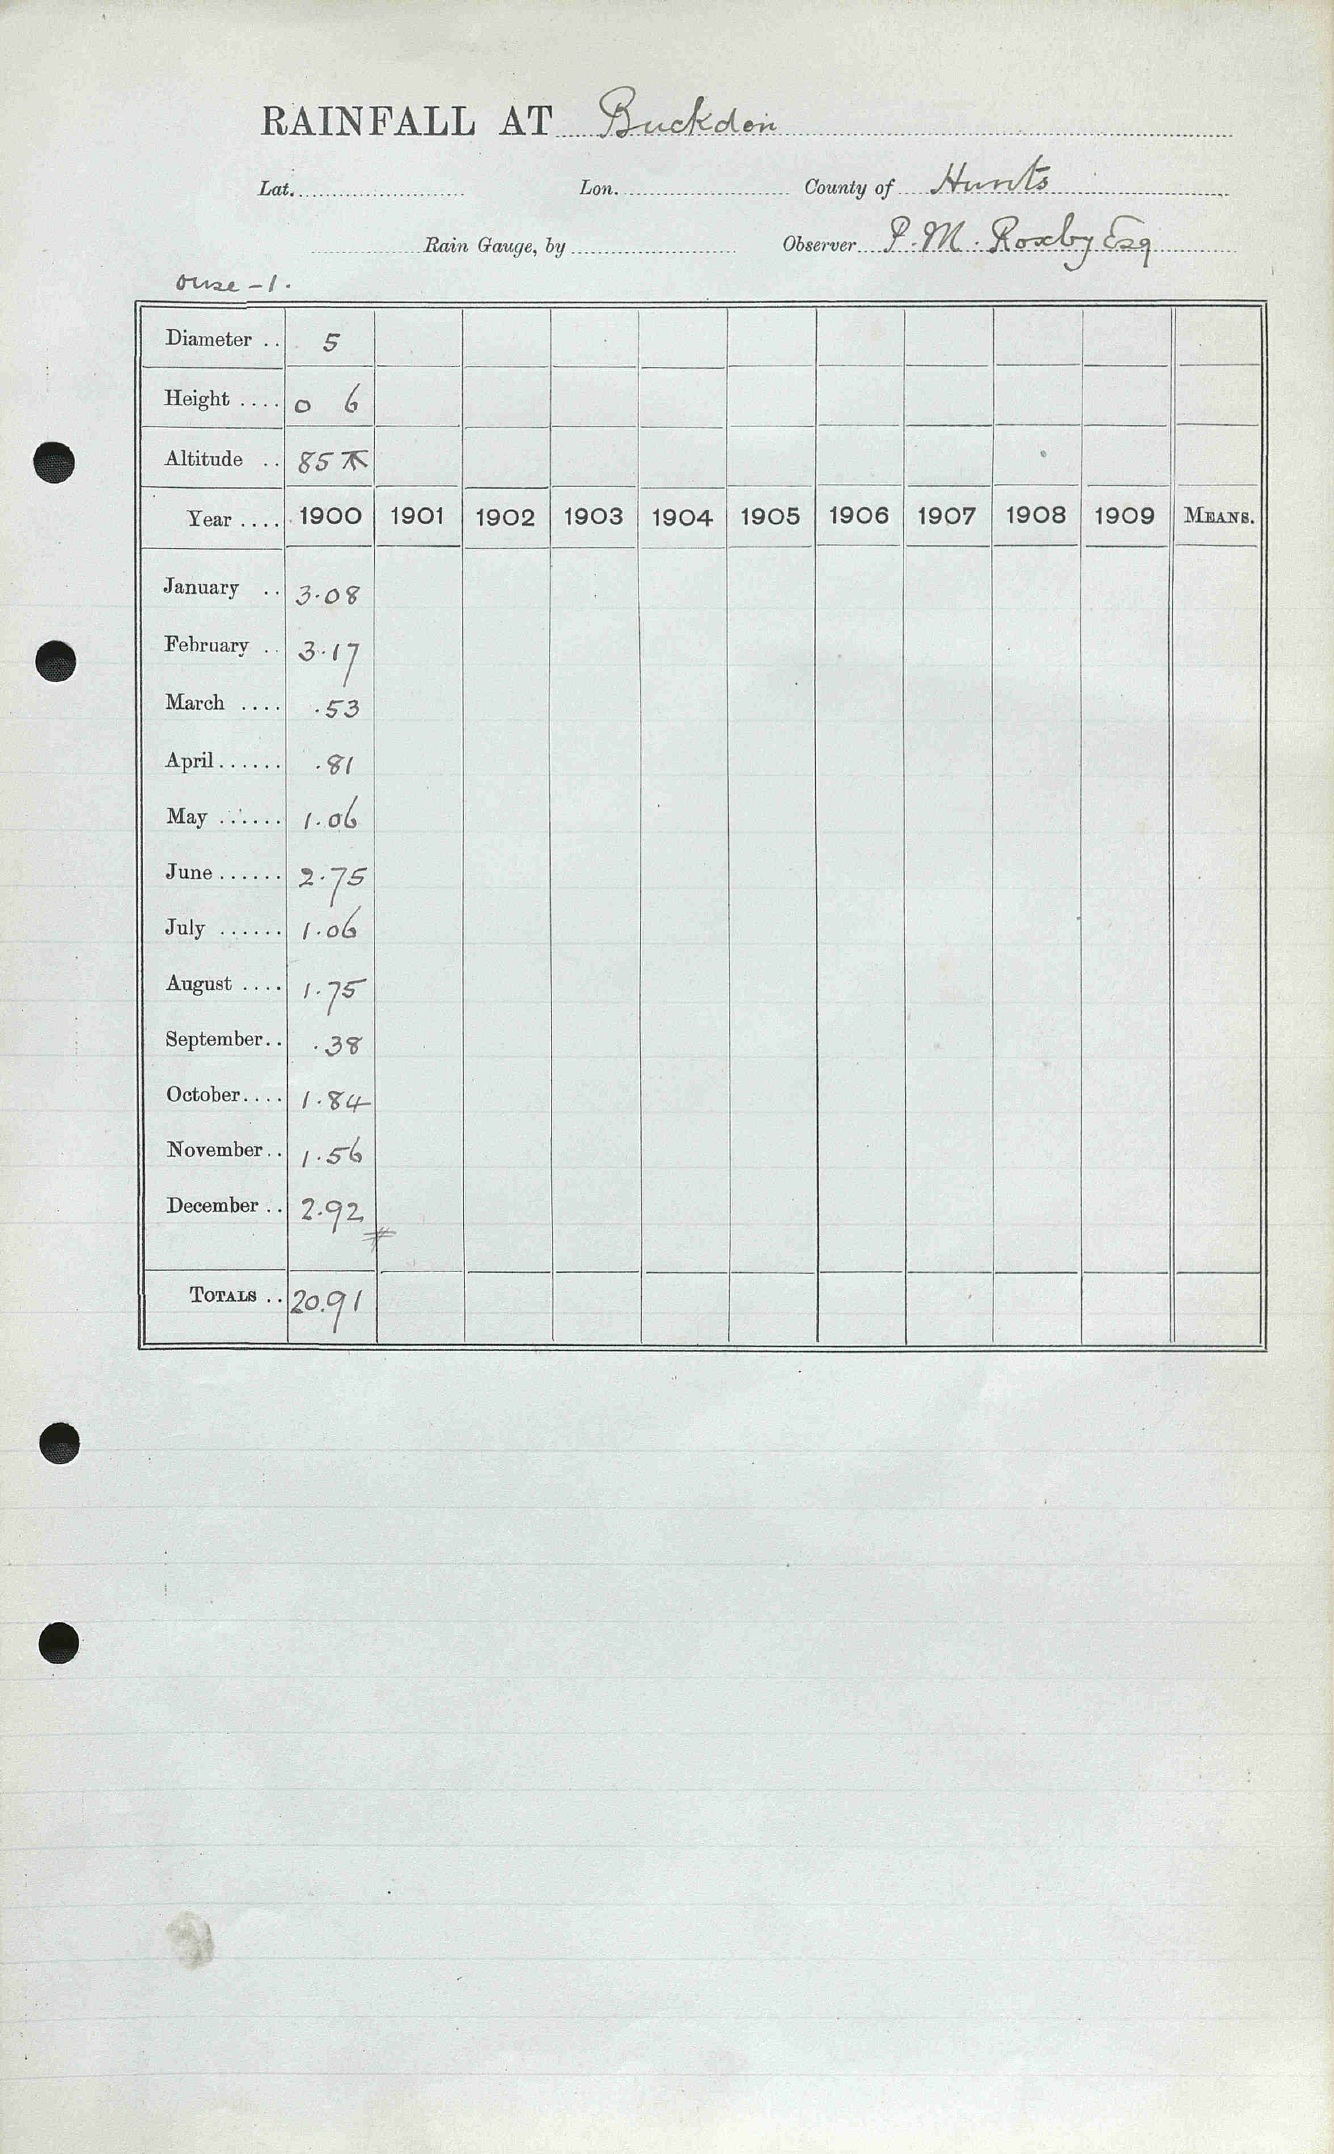 RAINFALL AT Buckden
Lat. Lon. County of Hunts
Rain Gauge, by Observer P. M. Roxby Esq
Ouse - 1.
Diameter .. 5
Height .... 0 6
Altitude .. 85
Year .... 1900 1901 1902 1903 1904 1905 1906 1907 1908 1909 MEANS.
January .. 3.08
February .. 3.17
March .... .53
April ...... .81
May ...... 1.06
June ...... 2.75
July ...... 1.06
August .... 1.75
September .. .38
October .... 1.84
November .. 1.56
December .. 2.92
TOTALS .. 20.91